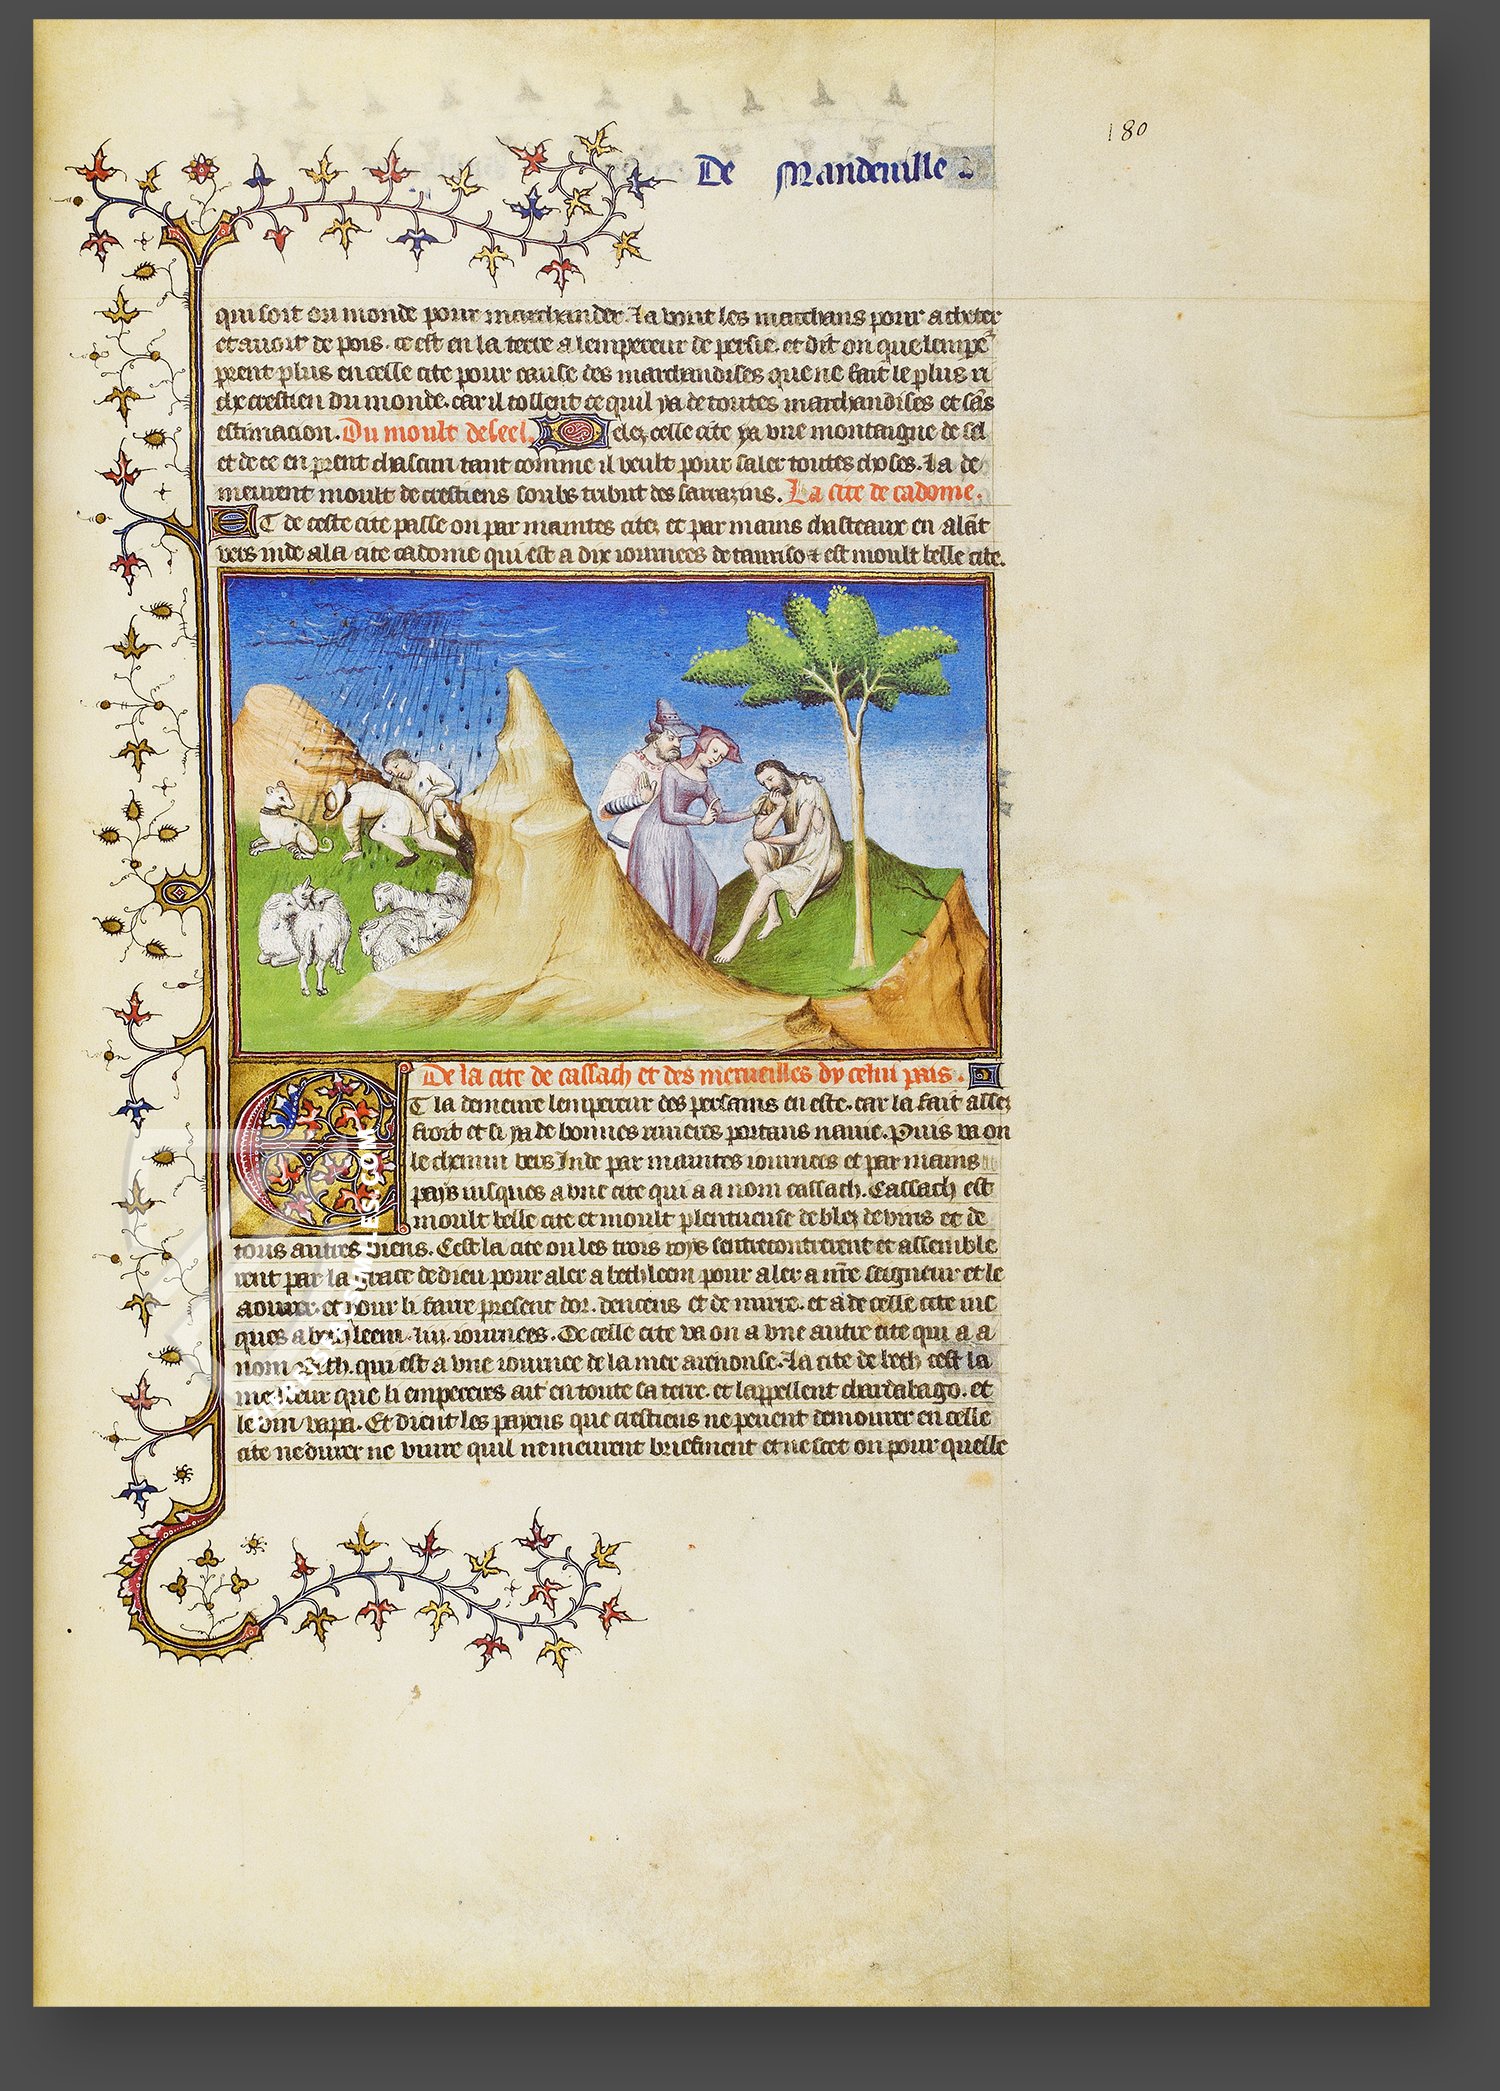 180
De Mandeuille
qui soit ou monde pour marchander. La vont les marchans pour acheter
et auoir de pois. ce est en la terre a lempereur de persie. et dit on que lempe
prent plus en celle cite pour cause des marchandises que ne fait le plus ri
che crestien du monde. car il tollent ce quil ya de toutes marchandises et sãs
estimacion. Du moult de seel. delez celle cite ya vne montaigne de sel
et de ce en prent chascun tant comme il veult pour saler toutes choses. La de
meurent moult de crestiens soubs tribut des sarrazins. La cite de cadome.
ET de ceste cite passe on par maintes citez et par mains chasteaux en alãt
vers inde a la cite cadome qui est a dix iournees de tauriso et est moult belle cite.
De la cite de cassach et des merueilles dy celui pais.
ET la demeure lempereur des persans en este. car la fait assez
froit et si ya de bonnes riuieres portans nauie. Puis va on
le chemin vers Inde par maintes iournees et par mains
pays iusques a vne cite qui a a nom cassach. Cassach est
moult belle cite et moult plentueuse de blez de vins et de
tous autres biens. Cest la cite ou les trois roys sentrecontrerent et assemble
rent par la grace de dieu pour aler a bethleem pour aler a nr̃e seigneur et le
aourer. et pour li faire present dor. dencens et de mirre. et a de celle cite ius
ques a bethleem. liij. iournees. De celle cite va on a vne autre cite qui a a
nom Beth. qui est a vne iournee de la mer arenouse. La cite de beth cest la
meilleur que li empereres ait en toute sa terre. et lappellent chardabago. et
le vin vapa. Et dient les payens que crestiens ne peuent demourer en celle
cite ne durer ne viure quil ne meurent briefment et ne scet on pour quelle